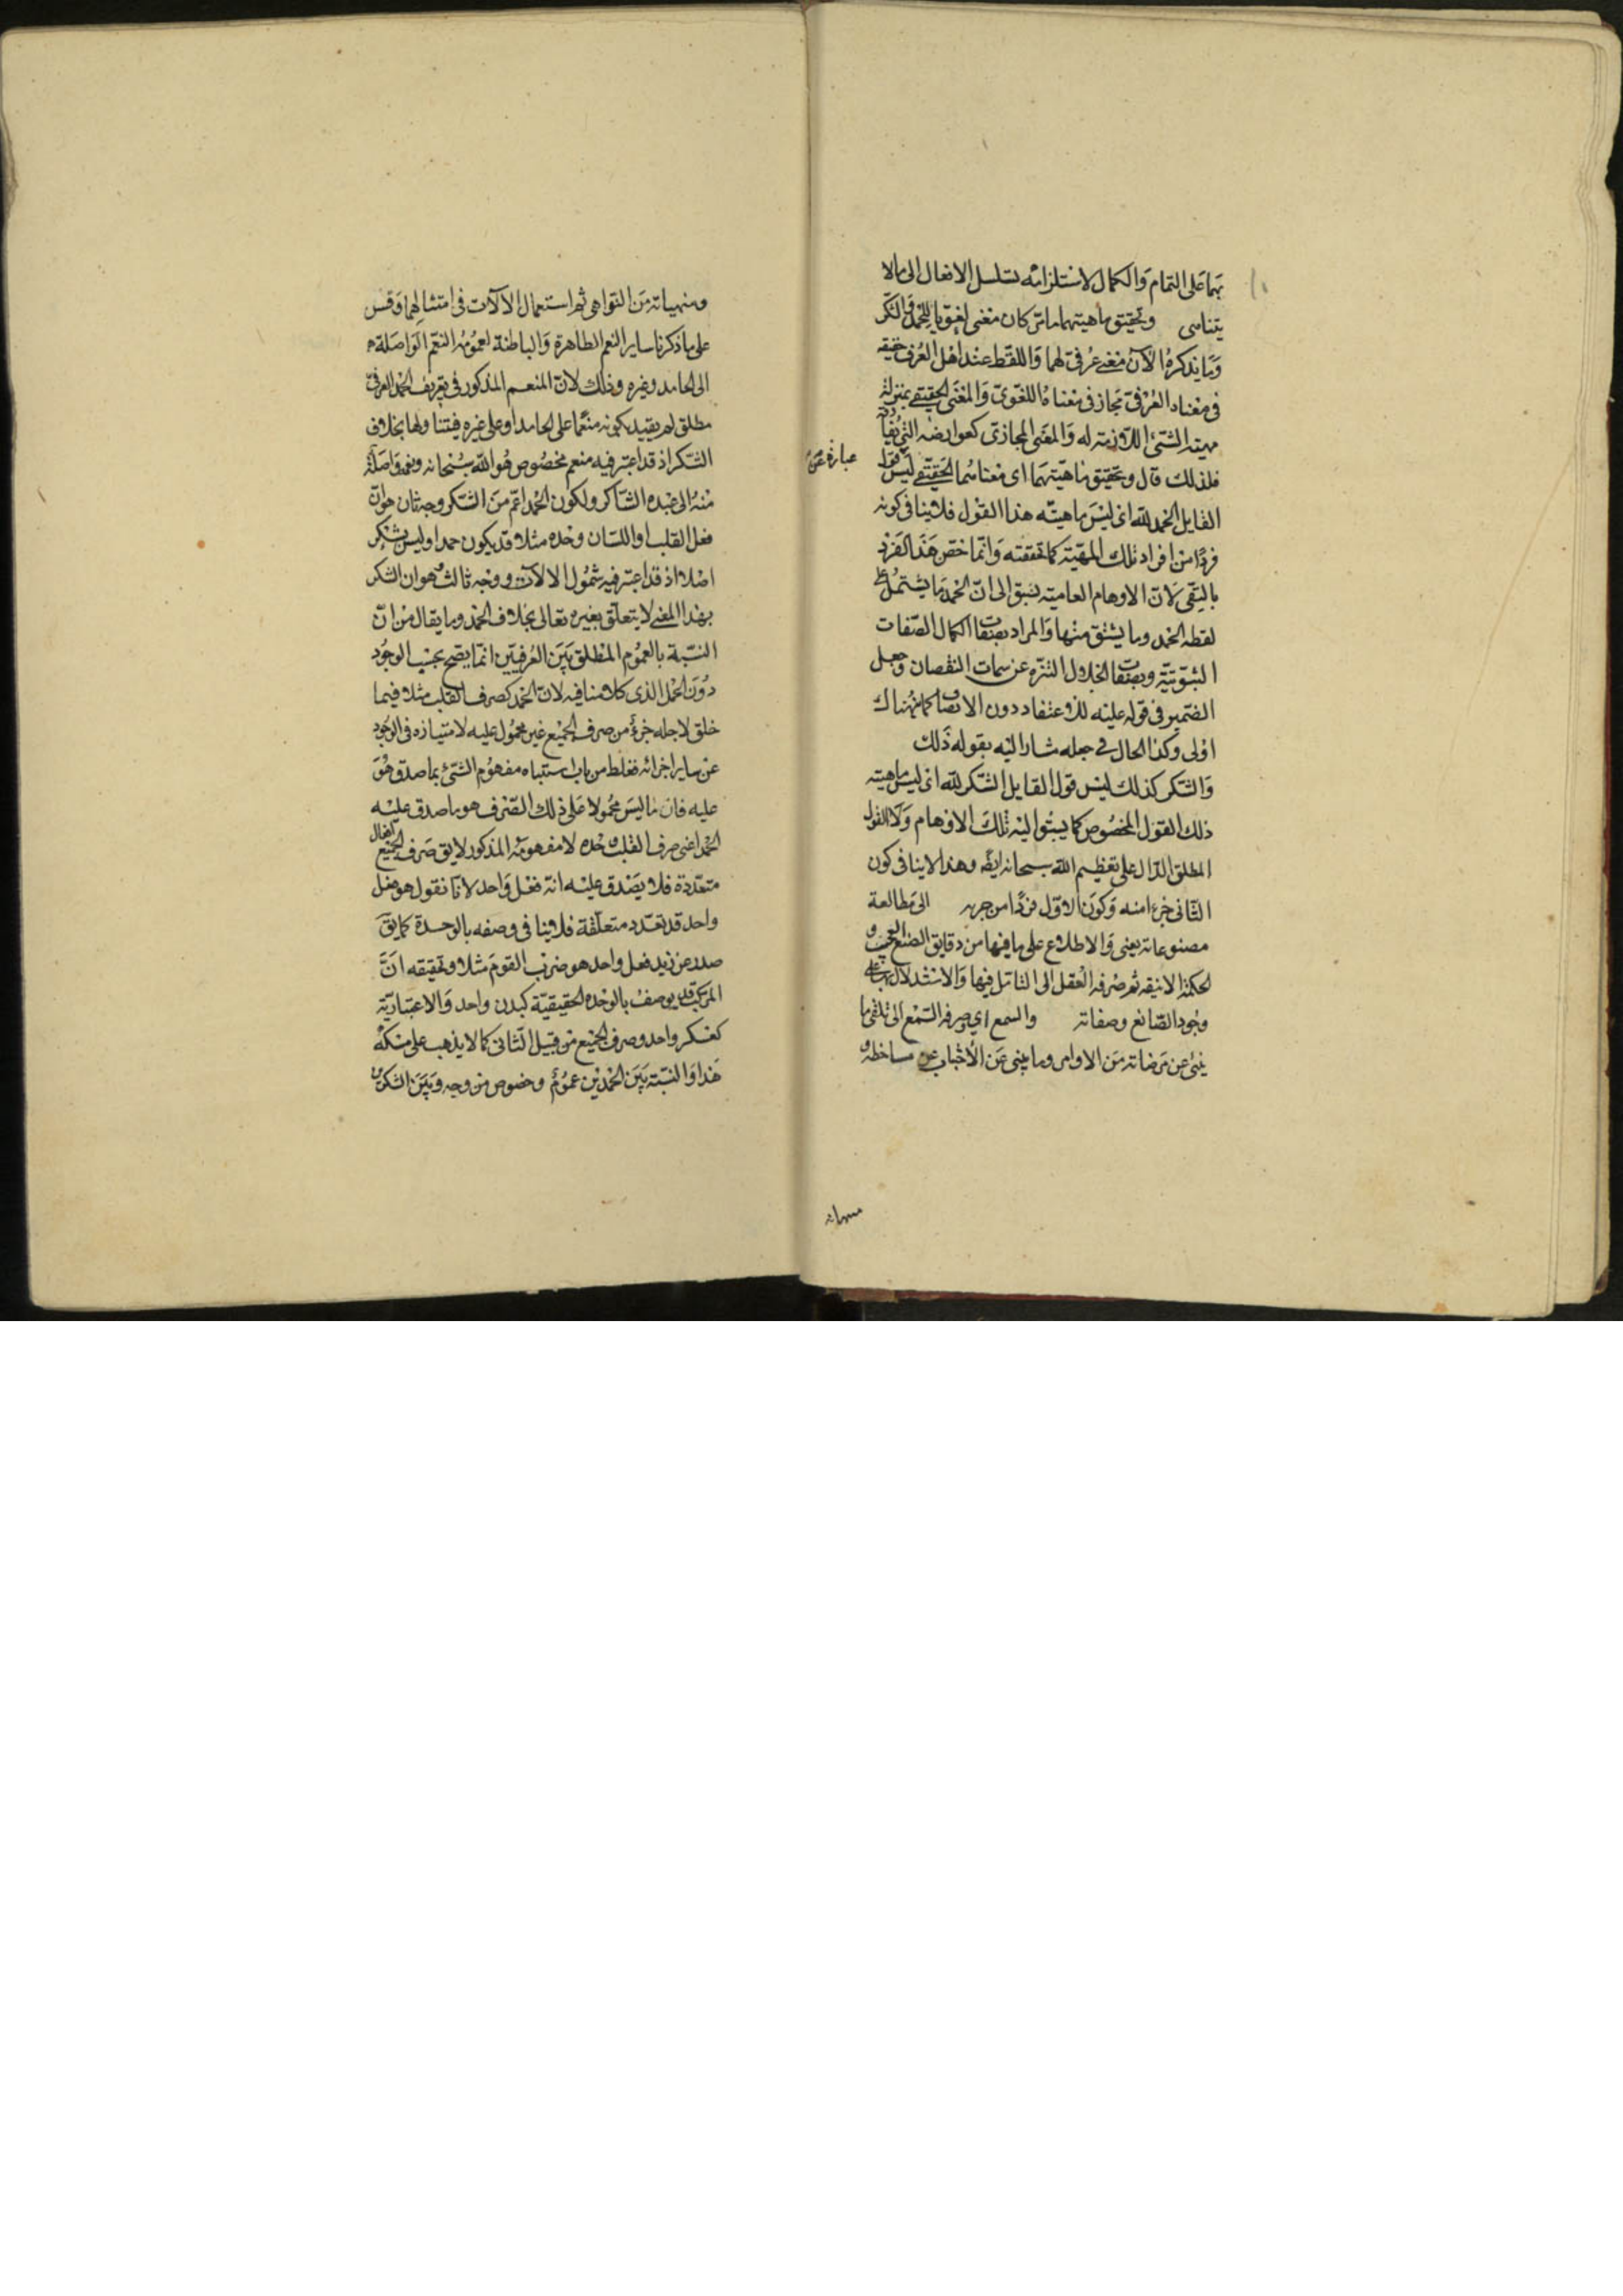 بهما على التمام والكمال لاستلزامه تسلسل الافعال الى ما لا
يتناهى وتحقيق ماهيتهما ما مر كان معنى لغويا للحمد والشكر
وما يذكره الآن معنى عرفي لهما واللفظ عند اهل العرف حقيقة
في معناه العرفي مجاز في معناه اللغوي والمعنى الحقيقي بمنزلة
مهية الشئ اللازمة له والمعنى المجازي كعوارضه التي
فلذلك قال وتحقيق ماهيتهما اى معناهما الحقيقي ليس قول
عبارة عن
القايل الحمد لله اى ليس ماهيته هذا القول فلا ينافى كونه
فردا من افراد تلك المهية كما تحققته وانما خص هذا الفرد
بالنفى لان الاوهام العامية تسبق الى ان الحمد ما يشتمل على
لفظه الحمد وما يشتق منها والمراد بصفات الكمال الصفات
الثبوتية وبصفات الجلال التنزه عن سمات النقصان وجعل
الضمير فى قوله عليه للاعتقاد دون الاتصاف كما هناك
اولى وكذا الحال فى جعله مشارا اليه بقوله ذلك
والشكر كذلك ليس قول القايل الشكر لله اى ليس ماهيته
ذلك القول المخصوص كما يسبق اليه تلك الاوهام ولا القول
المطلق الدال على تعظيم الله سبحانه ايضا وهذا لا ينافى كون
الثانى جزءا منه وكون الاول فردا من جزئه الى مطالعة
مصنوعاته يعنى والاطلاع على ما فيها من دقايق الصنع العجيب و
الحكمة الانيقه ثم صرفه العقل الى التأمل فيها والاستدلال بها على
وجود الصانع وصفاته والسمع اى صرفه السمع الى تلقى ما
ينبئ عن مرضاته من الاوامر وما ينبى عن الاجتناب عن مساخطه و
منهياته
ومنهياته من النواهى ثم استعمال الآلات فى امتثالهما وقس
على ما ذكرنا ساير النعم الظاهرة والباطنة لعمومه النعم الواصلة
الى الحامد وغيره وذلك لان المنعم المذكور فى تعريف الحمد العرفى
مطلق لم يقيد بكونه منعما على الحامد او على غيره فيتناولها بخلاف
الشكر اذ قد اعتبر فيه منعم مخصوص هو الله سبحانه ونعم واصلة
منه الى عبده الشاكر ولكون الحمد اعم من الشكر وجه ثان هو ان
فعل القلب او اللسان وحده مثلا قد يكون حمدا وليس بشكر
اصلا اذ قد اعتبر فيه شمول الآلات ووجه ثالث وهو ان الشكر
بهذا المعنى لا يتعلق بغيره تعالى بخلاف الحمد وما يقال من ان
النسبة بالعموم المطلق بين العرفيين انما يصح بحسب الوجود
دون الحمل الذى كلامنا فيه لان الحمد كصرف القلب مثلا فيما
خلق لاجله جزء من صرف الجميع غير محمول عليه لامتيازه فى الوجود
عن ساير اجزائه فغلط من باب اشتباه مفهوم الشئ بما صدق هو
عليه فان ما ليس محمولا على ذلك الصرف هو ما صدق عليه
الحمد اعنى صرف القلب وحده لا مفهومه المذكور لا يق صرف الجميع افعال
متعددة فلا يصدق عليه انه فعل واحد لانا نقول هو فعل
واحد قد تعدد متعلقة فلا ينافى وصفه بالوحدة كما يق
صدر عن زيد فعل واحد هو ضرب القوم مثلا وتحقيقه ان
المركب قد يوصف بالوحدة الحقيقية كبدن واحد والاعتبارية
كعسكر واحد وصرف الجميع من قبيل الثانى كما لا يذهب على مسكة
هذا والنسبة بين الحمدين عموم وخصوص من وجه وبين الشكرين